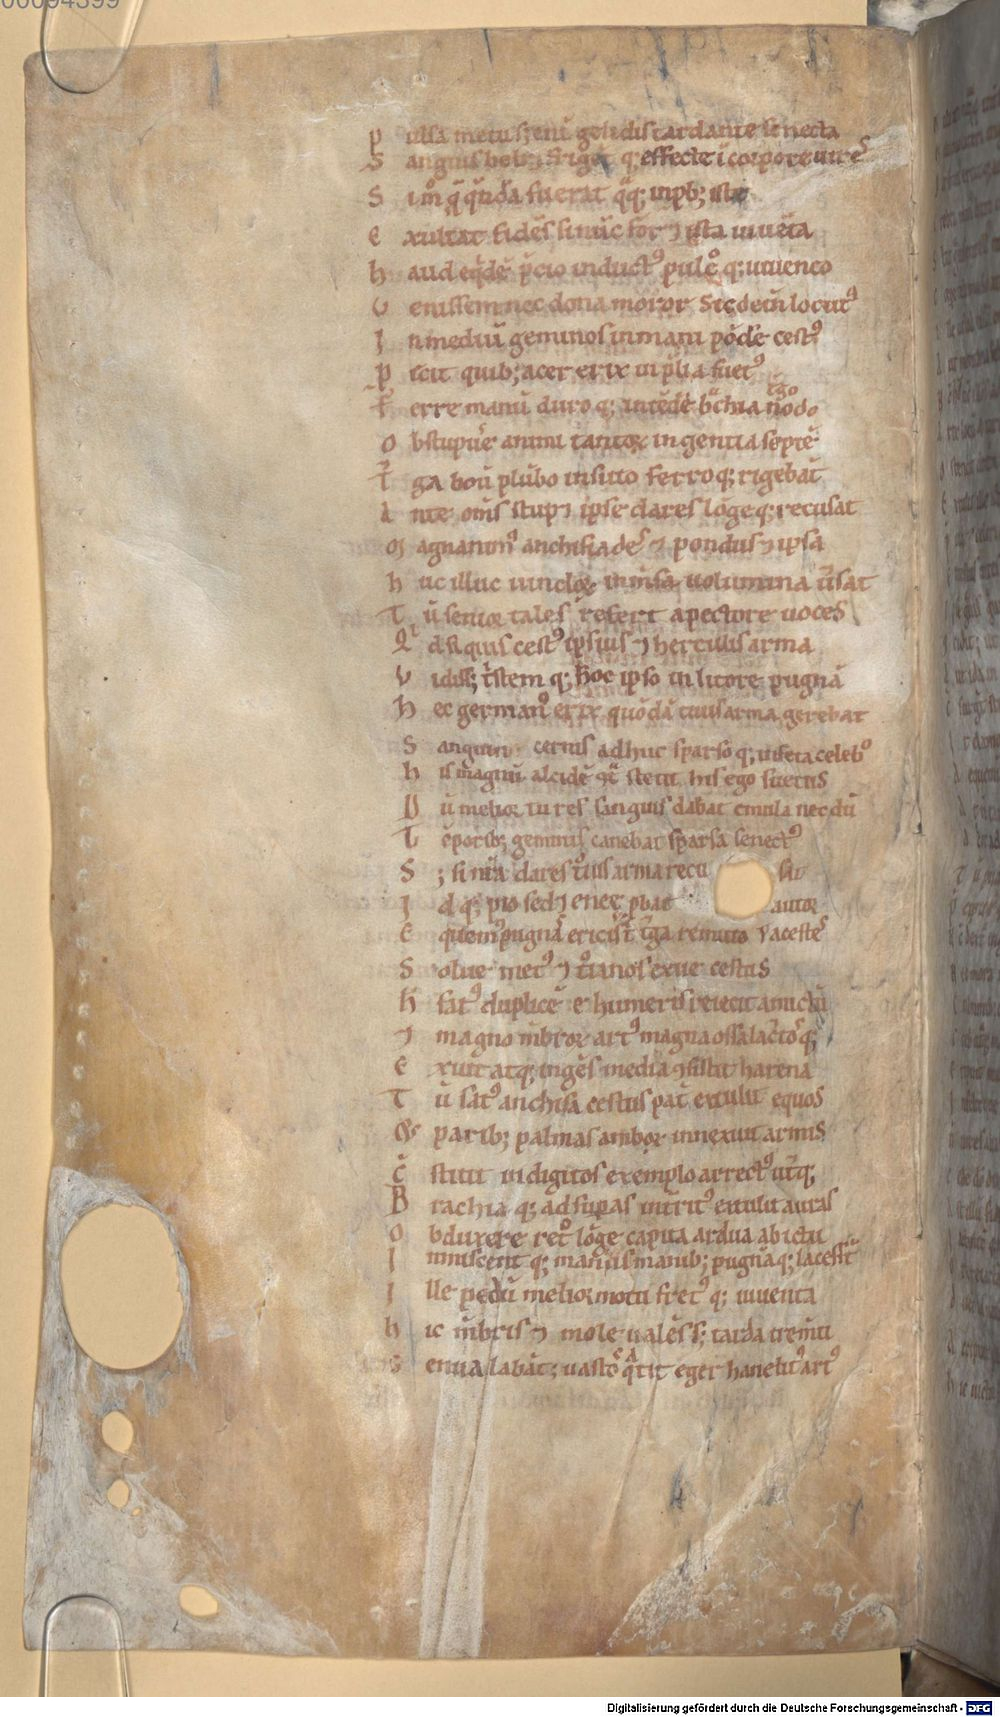 00094399
P ulsa metus; eni gelidus tardante senecta
S anguis hebꝫ friget qꝫ effecte ī corpore uires
S i m̊ q̄ q̄ndā fuerat q̄qꝫ inprbꝫ iste
E xultat fidēs si nūc foret ista iuuēta
h aud eqidē p̄cio inductꝰ pulc̊ qꝫ iuuenco
V enissem nec dona moror Sic dein̄ locutꝰ
I n mediū geminos inmani pōdere cestꝰ
P iecit quibꝫ acer erix in prlia suetꝰ
F erre manū duro qꝫ intēdere brchia tergo
O bstupuere animi tantoꝝ ingentia septē
T ga boū plūbo insuto ferro qꝫ rigebāt
A nte om̄s stupet ipse dares lōge qꝫ recusat
M agnanimꝰ anchisiades ⁊ pondus ⁊ ipsa
h uc illuc uincloꝝ inmsa uolumina ūsat
T ū senior tales refert a pectore uoces
Q d si quis cestꝰ ipsius ⁊ herculis arma
V idissꝫ tristem qꝫ hoc ipso in litore pugnā
h ec germanꝰ erix quōdā tuus arma gerebat
S anguine cernis adhuc sparso qꝫ infecta celebꝰ
h is magnū alcidē ꝯt̄ stetit his ego suetus
D ū melior uires sanguis dabat emula necdū
T ēporibꝫ geminis canebat sparsa senectꝰ
S ꝫ si nr̄a dares tꝰius arma recu sat
I d qꝫ pio sedet enee pbat autor
E quemꝰ pugnā ericis t̄ t̄ga remitto
S olue metꝰ ⁊ tꝰianos exue cestus
h fatꝰ duplicē ex humeris reiecit amictū
⁊ magno mbroꝝ artꝰ magna ossa lacertosqꝫ
E xuit atqꝫ ingēs media ꝯsistit harena
T ū satꝰ anchisa cestus pat̄ extulit equos
⁊ paribꝫ palmas amboꝝ innexuit armis
C stitit in digitos exemplo arrectꝰ ut̄qꝫ
B rachia qꝫ ad supas intritꝰ extulit auras
O bduxere retꝰ lōge capita ardua ab ictu
I nmiscent qꝫ manus manibꝫ pugnā qꝫ lacessūt
I lle pedū melior motu fretꝰ qꝫ iuuenta
h ic mbris ⁊ mole ualēs sꝫ tarda trementi
G enua labātꝫ uastos q̄tit eger hanelitꝰ artꝰ
Digitalisierung gefördert durch die Deutsche Forschungsgemeinschaft - DFG